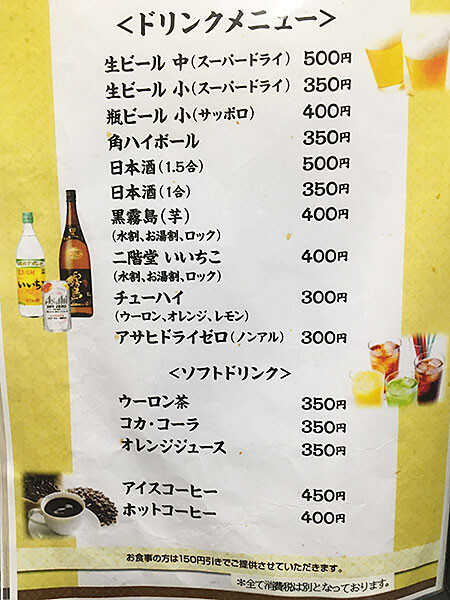 <ドリンクメニュー>
生ビール 中(スーパードライ) 500円
生ビール 小(スーパードライ) 350円
瓶ビール 小(サッポロ) 400円
角ハイボール 350円
日本酒(1.5合) 500円
日本酒(1合) 350円
黒霧島(芋) 400円
(水割、お湯割、ロック)
二階堂 いいちこ 400円
(水割、お湯割、ロック)
チューハイ 300円
(ウーロン、オレンジ、レモン)
アサヒドライゼロ(ノンアル) 300円
いいちこ
霧島
Asahi
DRY ZERO
<ソフトドリンク>
ウーロン茶 350円
コカ・コーラ 350円
オレンジジュース 350円
アイスコーヒー 450円
ホットコーヒー 400円
お食事の方は150円引きでご提供させていただきます。
*全て消費税は別となっております。